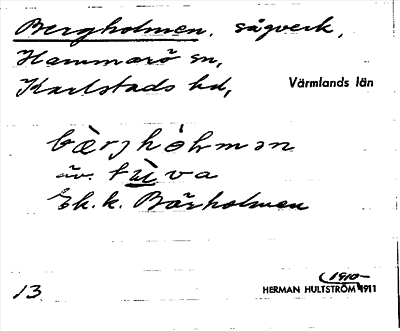 Bergholmen, sågverk,
Hammarö sn,
Karlstads hd,
Värmlands län
bærjhòlmən
äv. tùva
Ek. k. Bärholmen
1910–
13
HERMAN HULTSTRÖM 1911